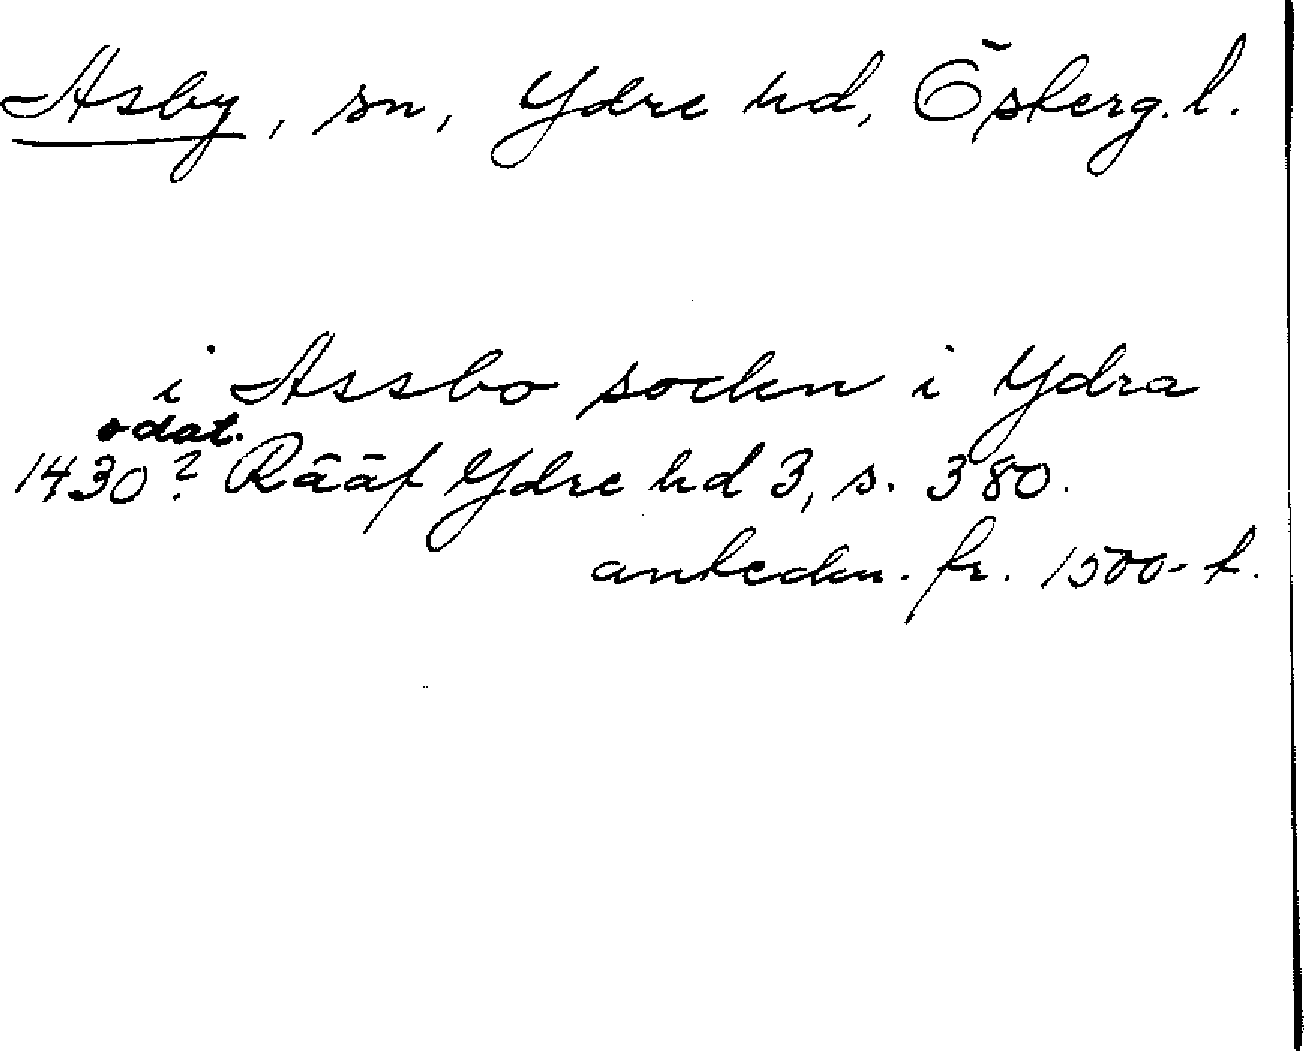 Asby, sn, Ydre hd, Österg. l.
i Assbo sockn i Ydra
odat.
1430? Rääf Ydre hd 3, s. 380.
anteckn. fr. 1500-t.